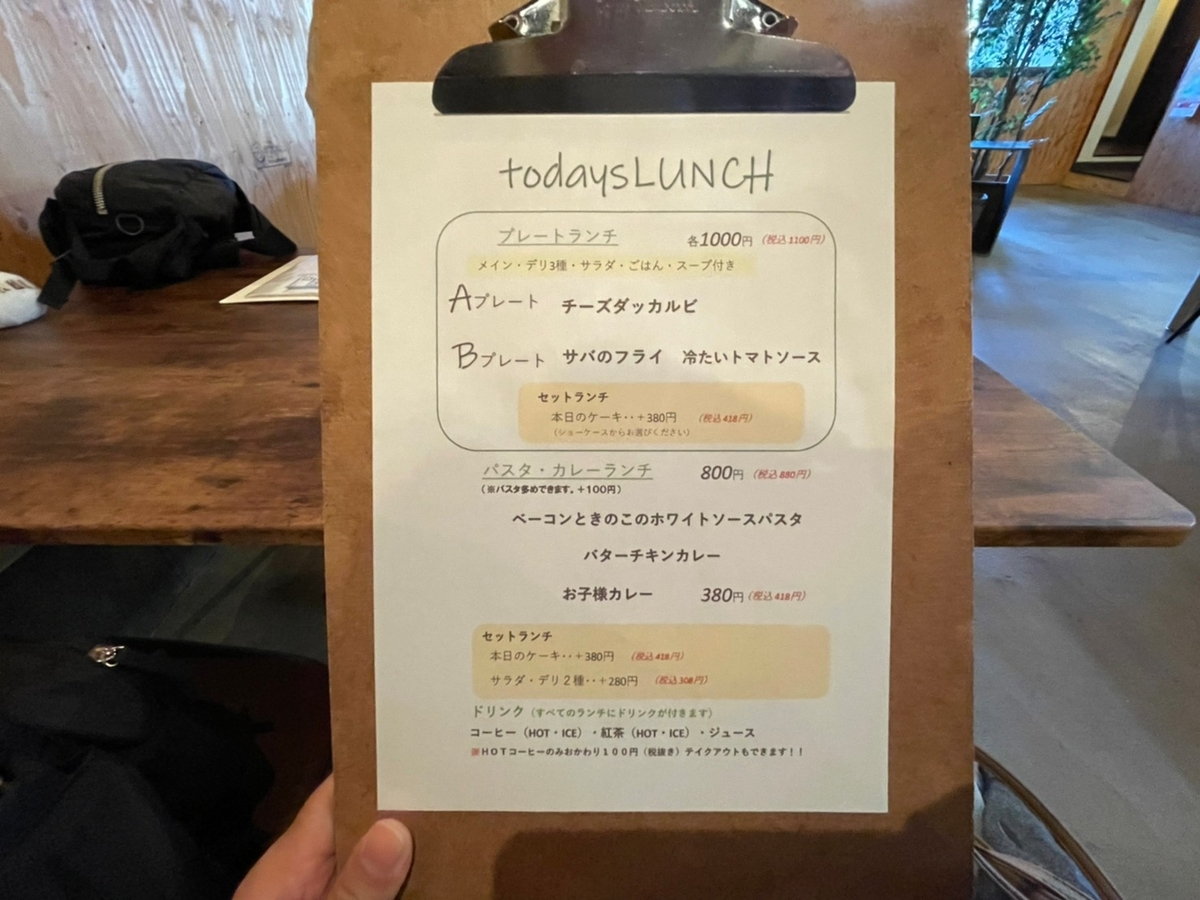 todaysLUNCH
プレートランチ 各1000円（税込1100円）
メイン・デリ3種・サラダ・ごはん・スープ付き
Aプレート チーズダッカルビ
Bプレート サバのフライ 冷たいトマトソース
セットランチ
本日のケーキ‥＋380円（税込418円）
（ショーケースからお選びください）
パスタ・カレーランチ 800円（税込880円）
（※パスタ多めできます。+100円）
ベーコンときのこのホワイトソースパスタ
バターチキンカレー
お子様カレー 380円（税込418円）
セットランチ
本日のケーキ‥＋380円（税込418円）
サラダ・デリ２種‥＋280円（税込308円）
ドリンク（すべてのランチにドリンクが付きます）
コーヒー（HOT・ICE）・紅茶（HOT・ICE）・ジュース
※ＨＯＴコーヒーのみおかわり１００円（税抜き）テイクアウトもできます！！